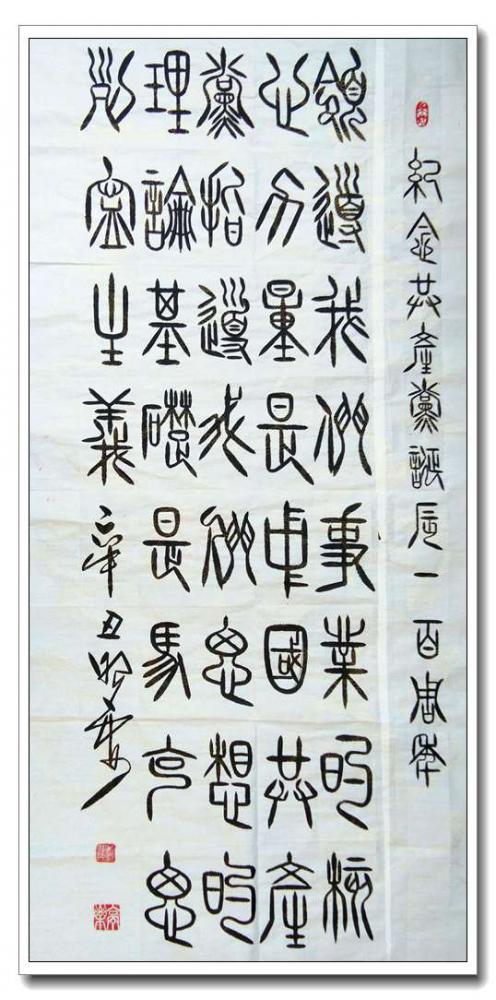 紀念共產黨誕辰一百周年
領導我們事業的核
心力量是中國共產
黨指導我們思想的
理論基礎是馬克思
列寧主義 辛丑